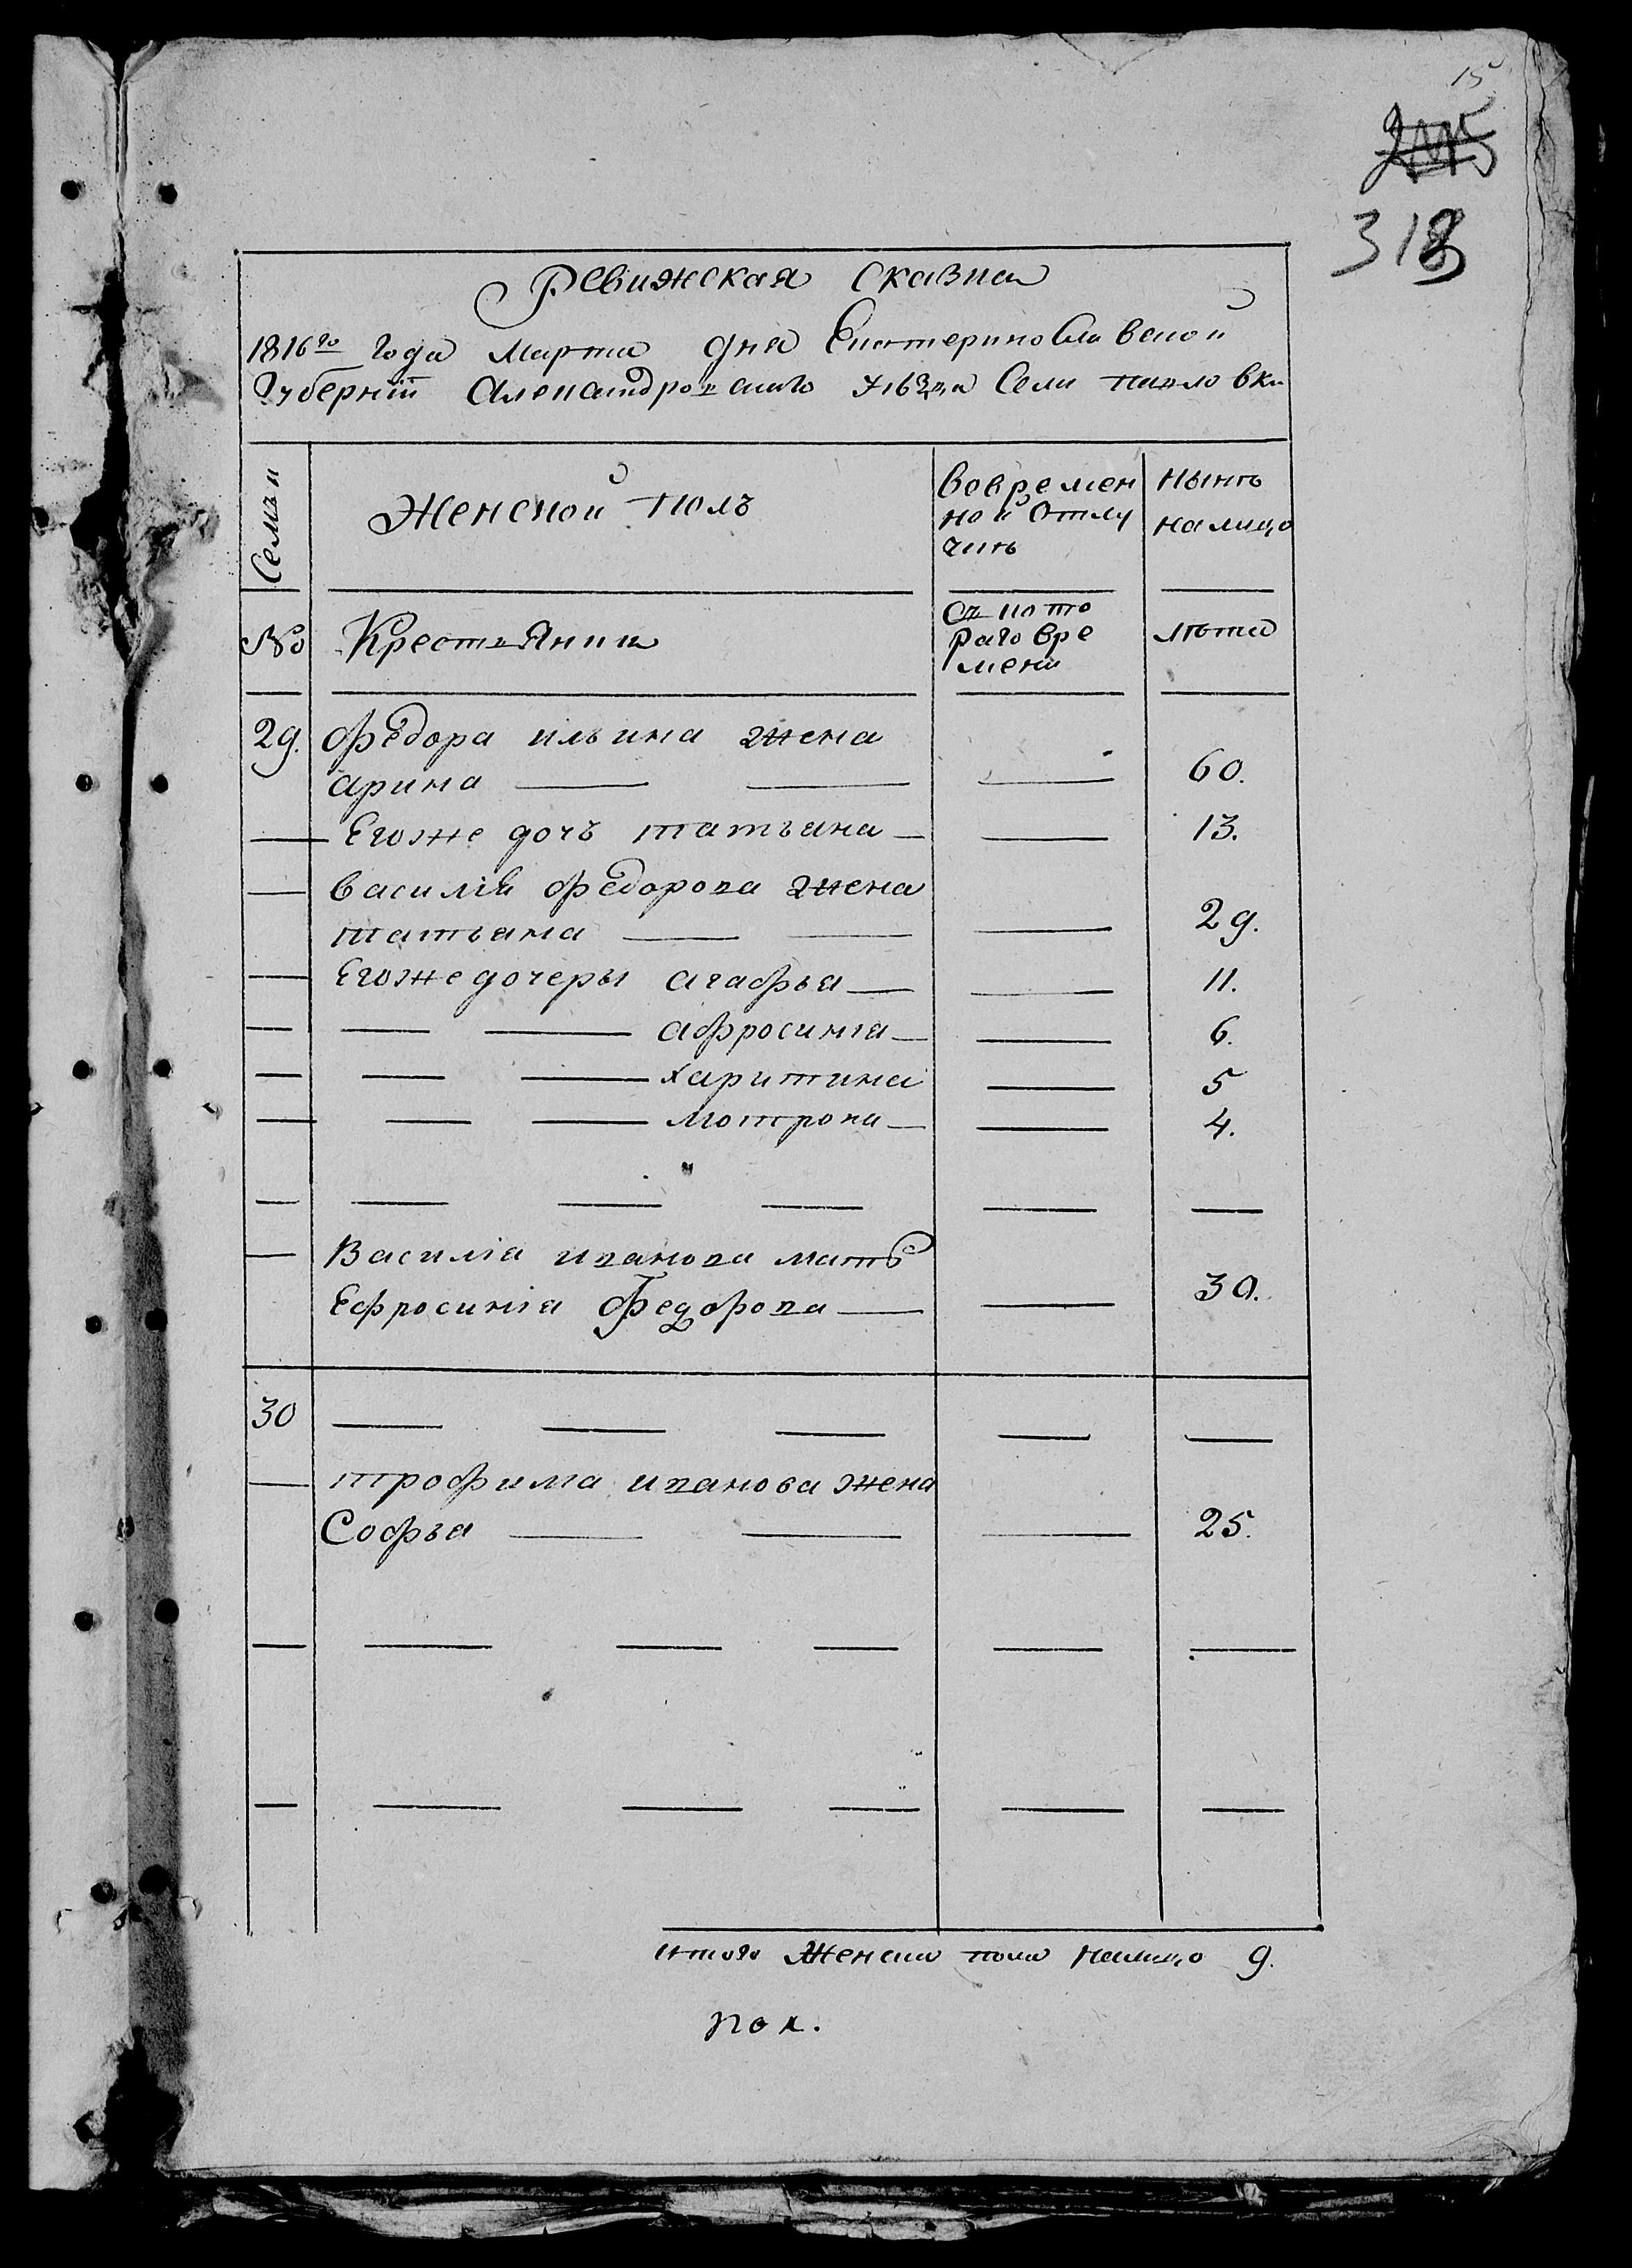 15
318
Ревижская сказка
1816го года Марта дня Екатеринославской
Губернїи Александровскаго уѣзда Села павловки
Семьи
Женской полъ
вовремен
ной отлу
чкѣ
нынѣ
налицо
№
Крестьянин
съ кото
раго вре
мени
лѣта
29. федора ильина жена
арина — — — 60.
— Егоже дочь татьана — — 13.
— василїя федорова жена
татьана — — — 29.
— Егоже дочеры агафья — — 11.
— — — афросинїа — — 6.
— — — харитина — 5
— — — мотрона — — 4.
— — — — — —
— Василїа иванова мать
Ефросинїа Федорова — — 30.
30 — — — — —
— трофима иванова жена
Софьа — — — 25.
— — — — — —
— — — — — —
итого женска пола налицо 9.
пох.